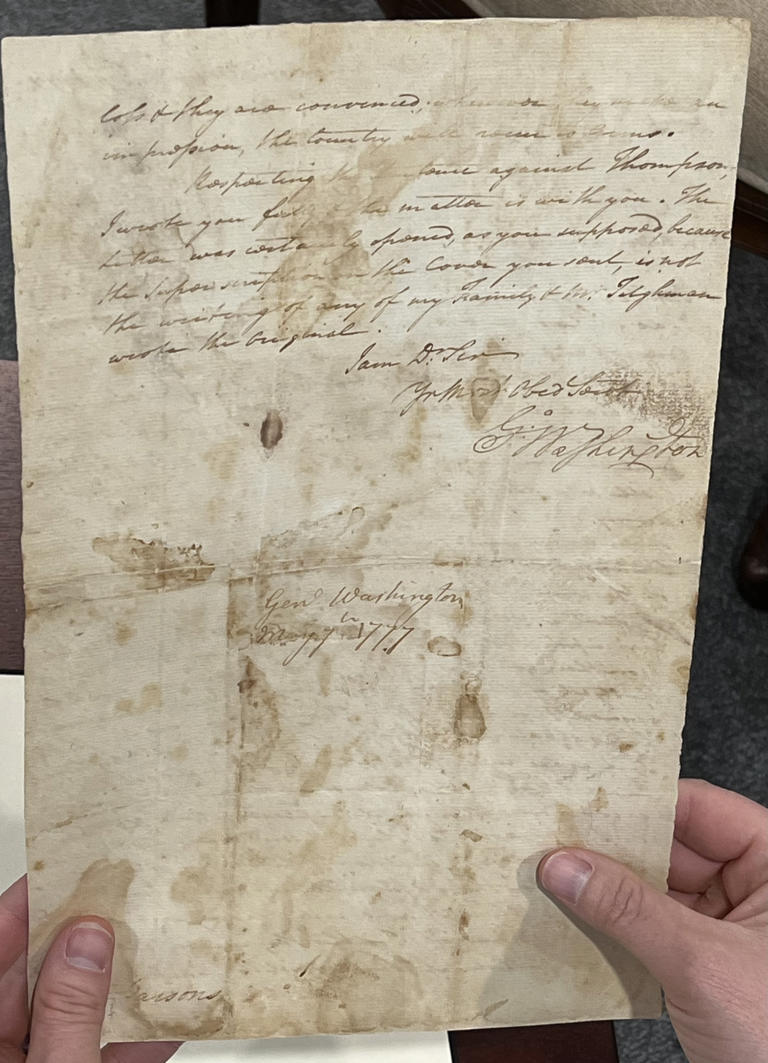 loss & they are convinced, whenever they make an
impression, the Country will run to Arms.
Respecting the against Thompson,
I wrote you fully & the matter is with you. The
Letter was certainly opened, as you supposed, because
the Superscription on the Cover you sent, is not
the writing of any of my Family & Mr. Tilghman
wrote the Original.
I am Dr Sir
Yr Most Obed Servt
Go Washington
Genl Washington
May 7th 1777
Parsons